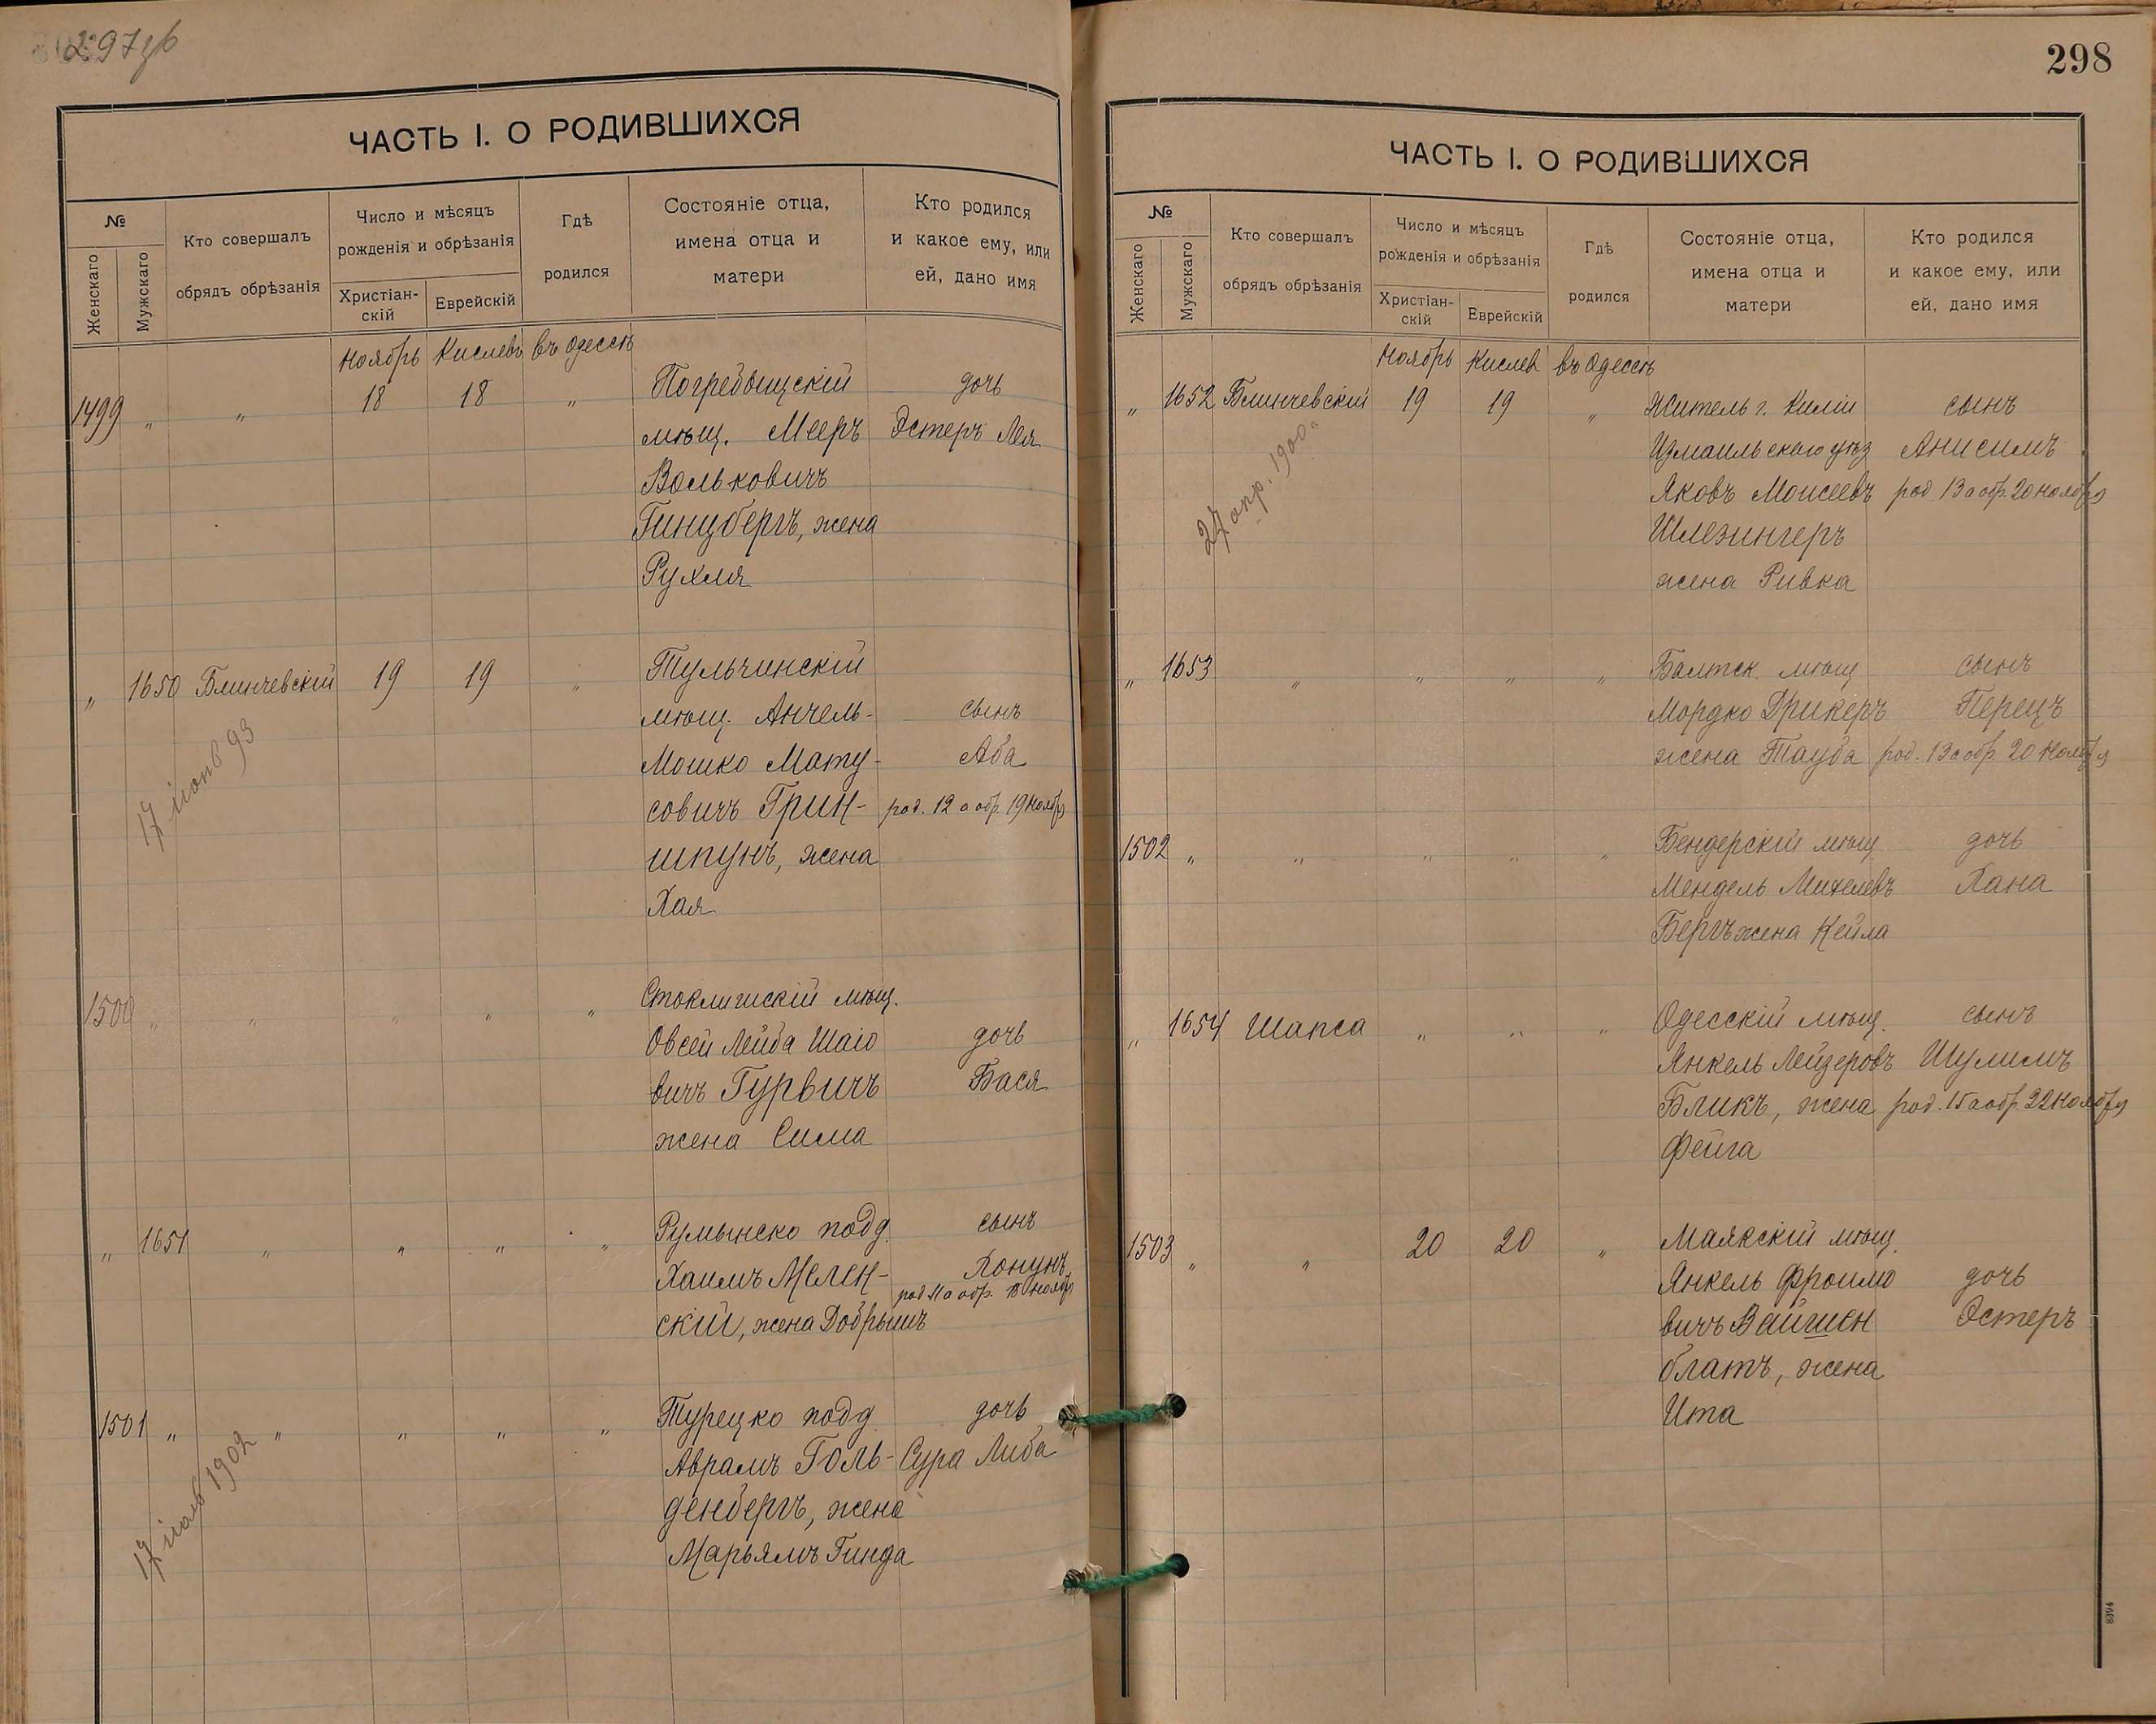 297об
ЧАСТЬ I. О РОДИВШИХСЯ
№
Женскаго
Мужскаго
Кто совершалъ
обрядъ обрѣзанія
Число и мѣсяцъ
рожденія и обрѣзанія
Христіан-
скій
Еврейскій
Гдѣ
родился
Состояніе отца,
имена отца и
матери
Кто родился
и какое ему, или
ей, дано имя
Ноябрь Кислевъ въ Одессѣ
1499 " " 18 18 " Погребыщскій дочь
мѣщ. Мееръ Эстеръ Лея
Вольковичъ
Гинцбергъ, жена
Рухля
" 1650 Блинчевскій 19 19 " Тульчинскій
мѣщ. Анчель- сынъ
Мошко Мату- Аба
совичъ Грин- род. 12 а обр. 19 Ноябр
шпунъ, жена
Хая
17 іюнь 93
1500 " " " " " Стоклишскій мѣщ.
Овсей Лейба Шаіо дочь
вичъ Гурвичъ Бася
жена Сима
" 1651 " " " " Румынско подд. сынъ
Хаимъ Мелен- Хонунъ
род 11 а обр. 18 ноябр
скій, жена Добрышъ
1501 " " " " " Турецко подд. дочь
Аврамъ Голь- Сура Либа
денбергъ, жена
Марьямъ Гинда
17 іюль 1902
298
ЧАСТЬ I. О РОДИВШИХСЯ
№
Женскаго
Мужскаго
Кто совершалъ
обрядъ обрѣзанія
Число и мѣсяцъ
рожденія и обрѣзанія
Христіан-
скій
Еврейскій
Гдѣ
родился
Состояніе отца,
имена отца и
матери
Кто родился
и какое ему, или
ей, дано имя
Ноябрь Кислев въ Одессѣ
" 1652 Блинчевскій 19 19 " Житель г. Киліи сынъ
Измаильскаго уѣз Анисимъ
Яковъ Моисеевъ род. 13 а обр. 20 ноябр
Шлезингеръ
жена Ривка
24 апр. 1900
" 1653 " " " " Балтск. мѣщ сынъ
Мордко Дрикеръ Перецъ
жена Тауба род. 13 а обр. 20 Ноябр
1502 " " " " " Бендерскій мѣщ дочь
Мендель Михелевъ Хана
Бергъ жена Кейла
" 1654 Шапса " " " Одесскій мѣщ. сынъ
Янкель Лейзеровъ Шулимъ
Бликъ, жена род. 15 а обр. 22 Ноябр
Фейга
1503 " " 20 20 " Маякскій мѣщ.
Янкель Фроимо дочь
вичъ Вайшен Эстеръ
блатъ, жена
Ита
8394